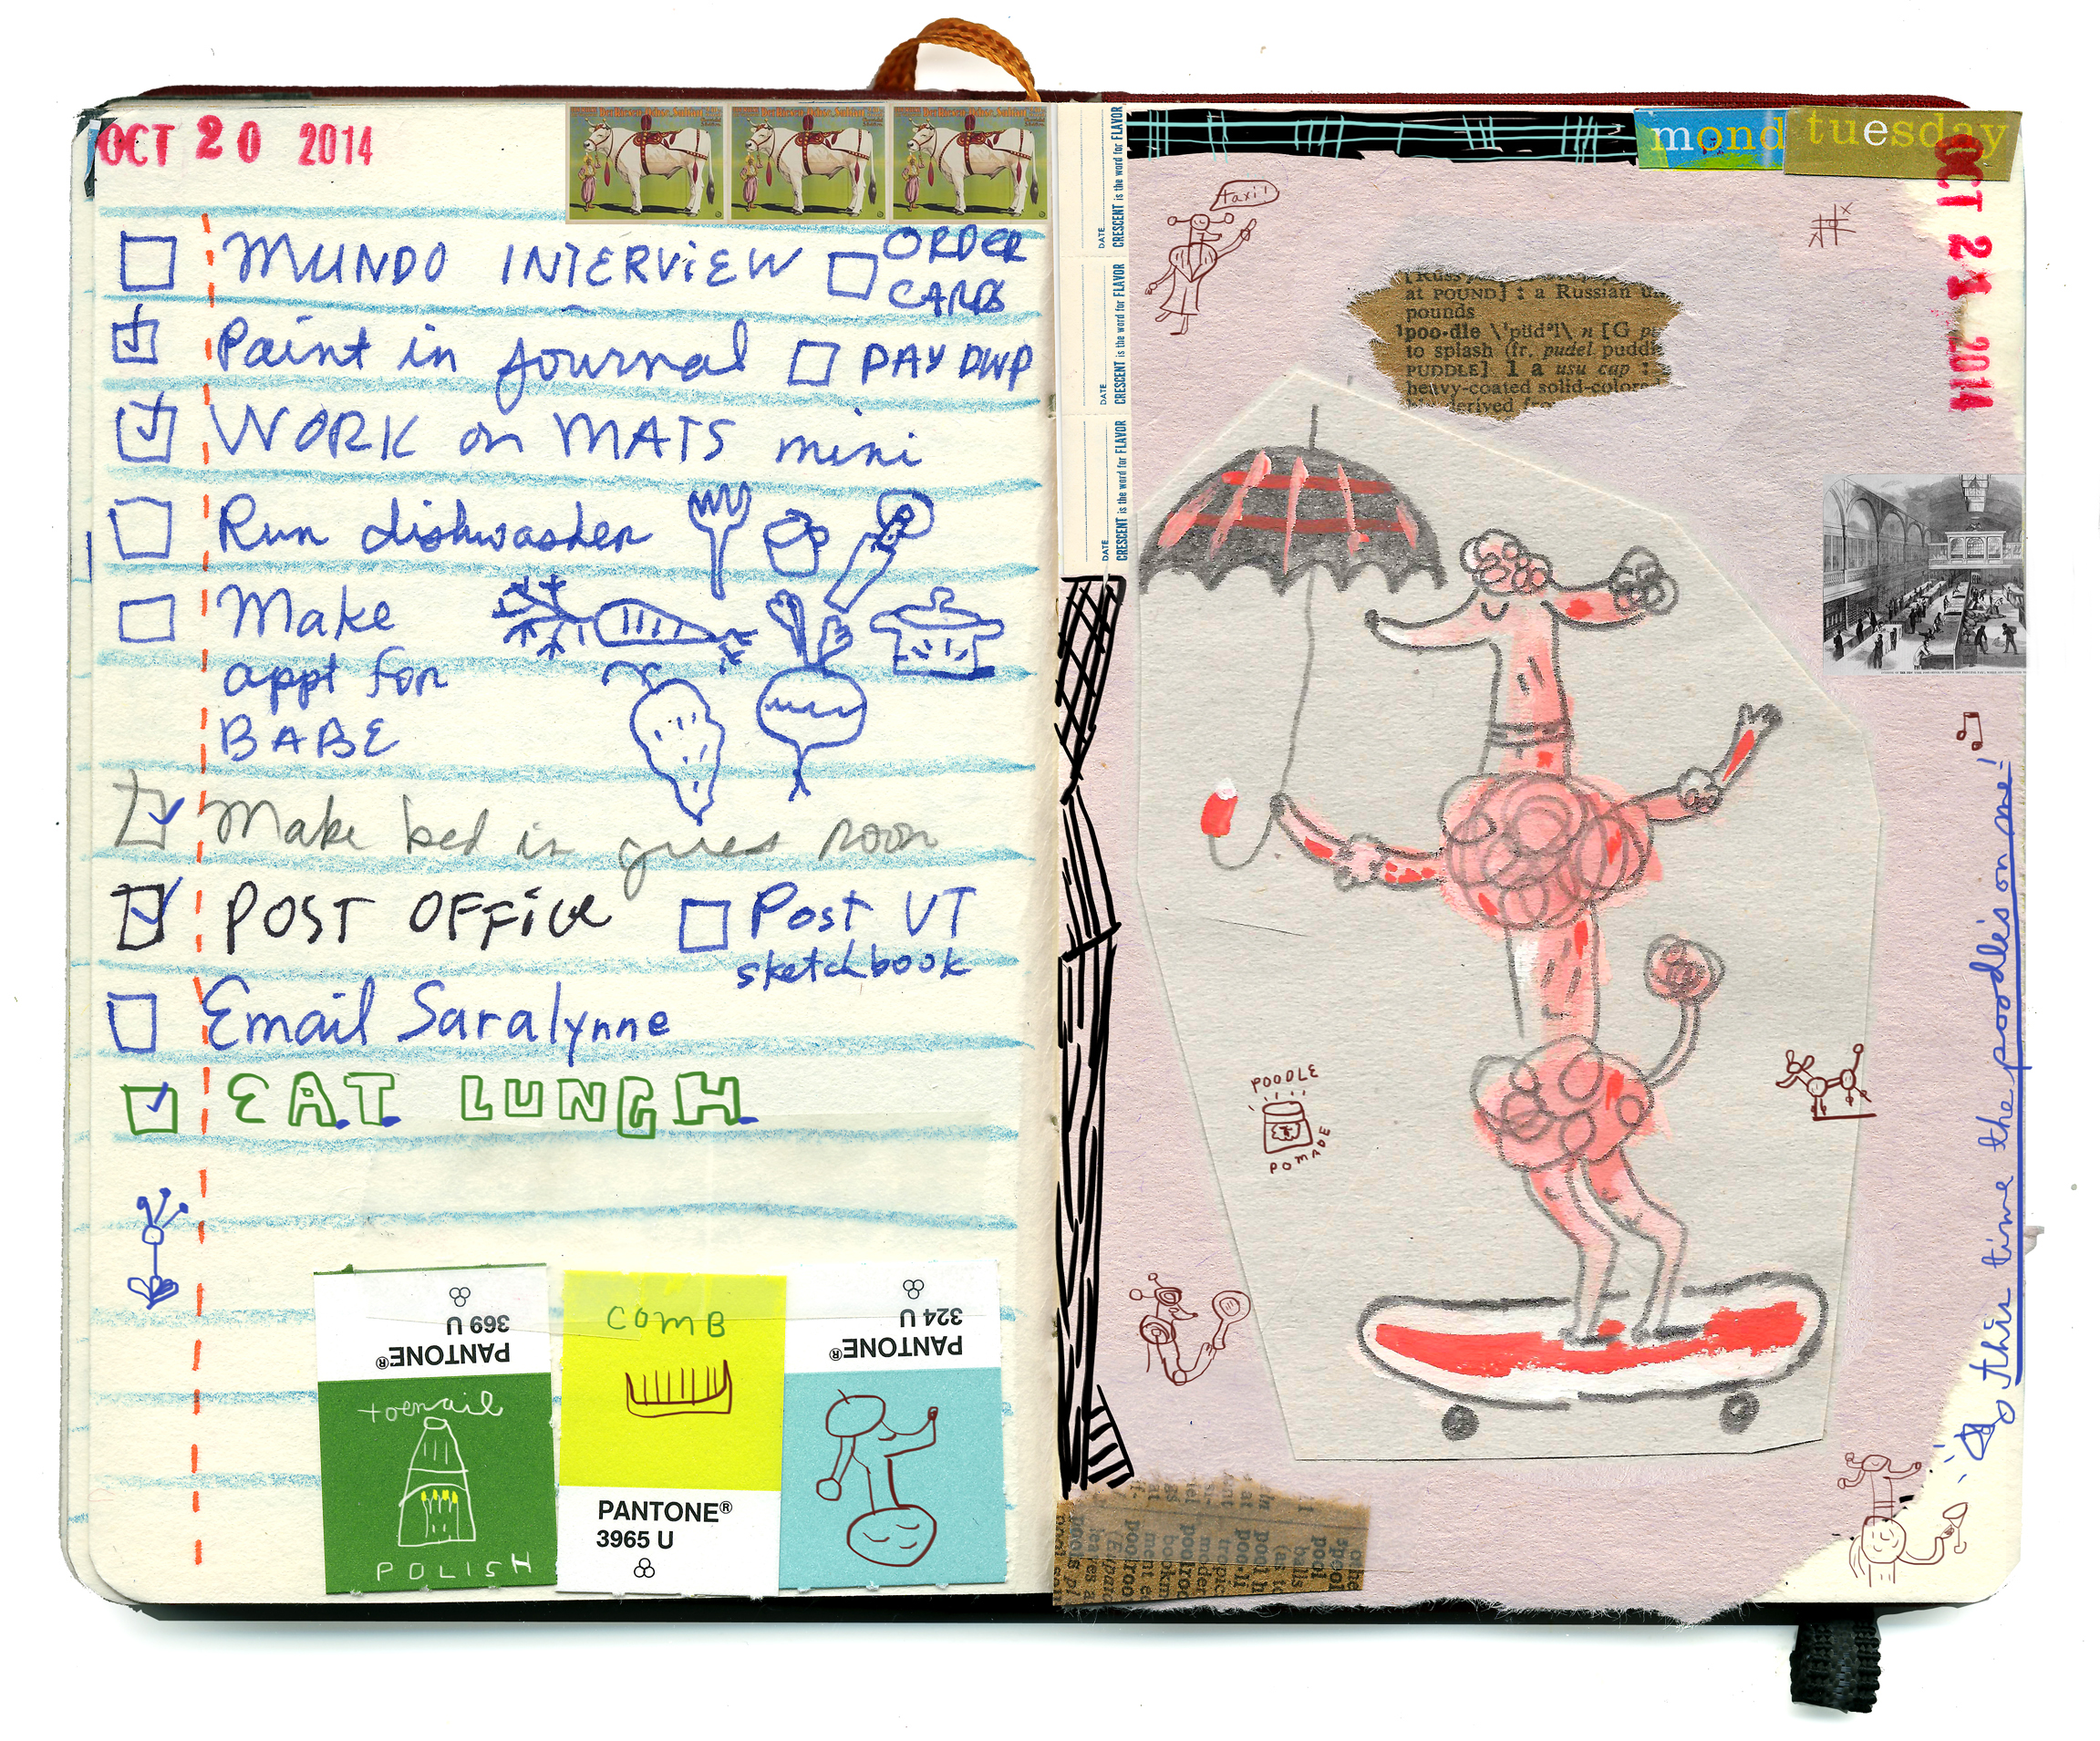 OCT 20 2014
MUNDO INTERVIEW
ORDER
CARDS
Paint in journal
PAY DWP
WORK on MATS mini
Run dishwasher
Make
appt for
BABE
Make bed in gues room
POST OFFICE
Post VT
sketchbook
Email Saralynne
EAT LUNCH
PANTONE®
369 U
toenail
POLISH
COMB
PANTONE®
3965 U
PANTONE®
324 U
DATE
CRESCENT is the word for FLAVOR
DATE
CRESCENT is the word for FLAVOR
DATE
CRESCENT is the word for FLAVOR
mond
tuesday
OCT 21 2014
taxi!
at POUND] : a Russian
pounds
¹poo·dle \ˈpüdᵊl\ n [G
to splash (fr. pudel
PUDDLE] 1 a usu cap :
heavy-coated solid-colored
derived
POODLE
POMADE
this time the poodle's on me!